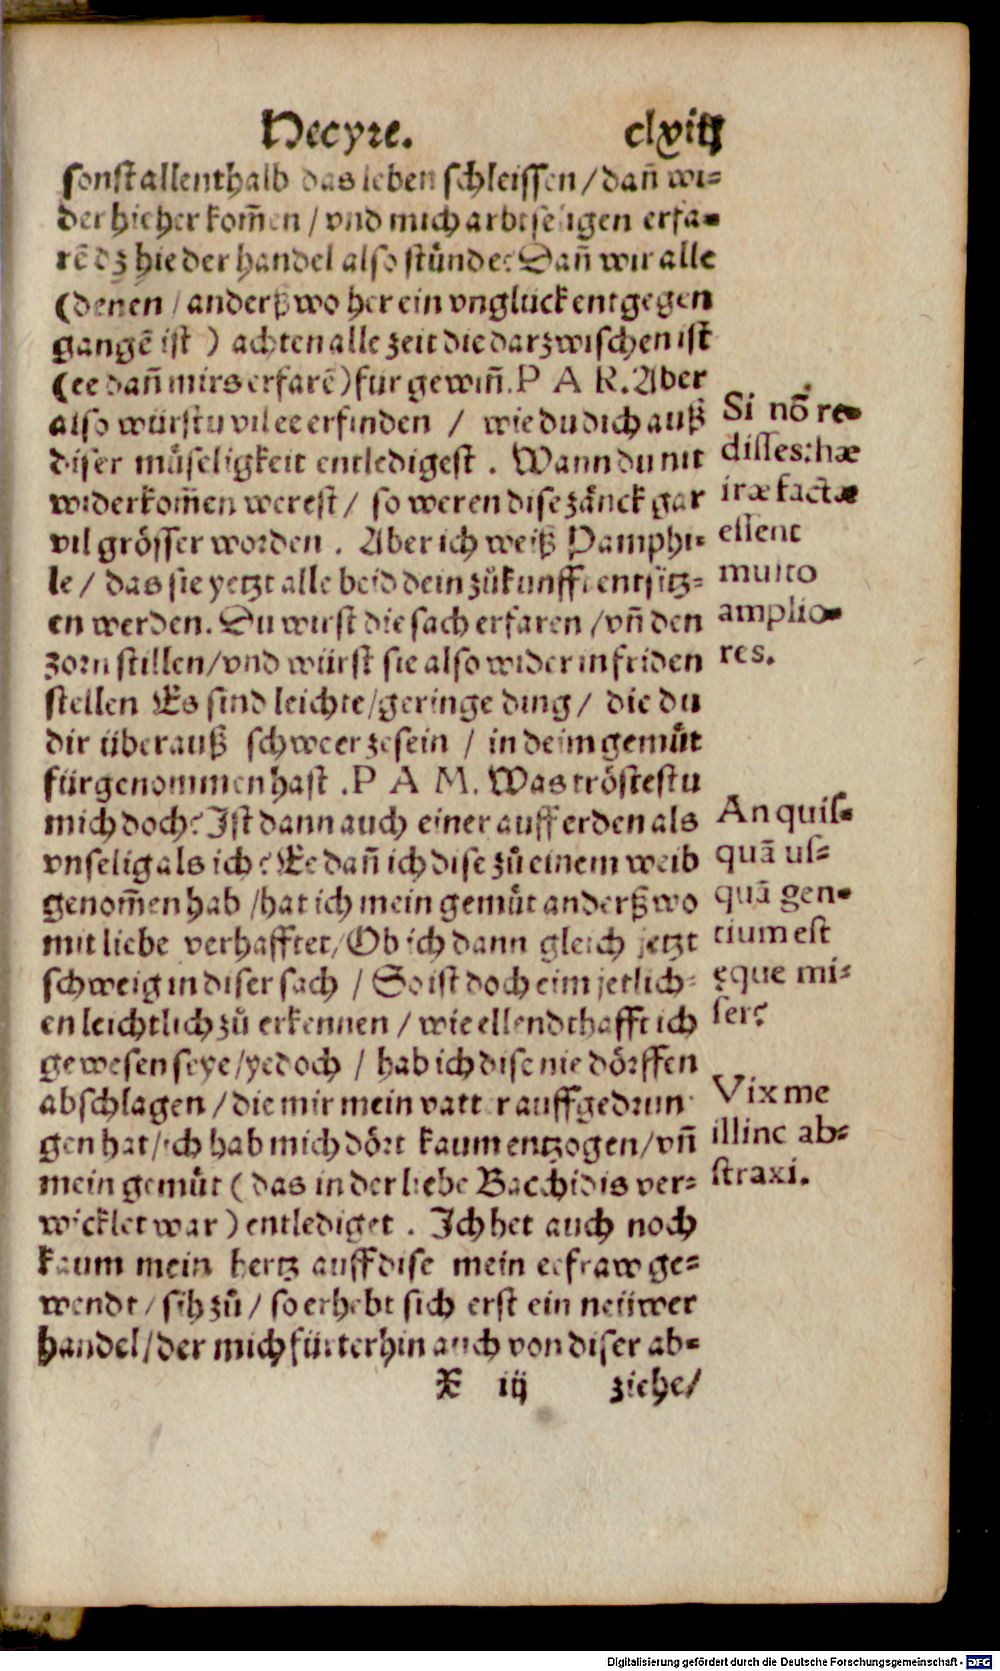 Hecyre. clxiij
sonst allenthalb das leben schleissen / dañ wi⸗
der hieher kom̄en / vnd mich arbtseligen erfa⸗
rē dz hie der handel also stůnde? Dañ wir alle
(denen / anderßwo her ein vnglück entgegen
gangē ist ) achten alle zeit die darzwischen ist
(ee dañ mirs erfarē) für gewiñ. P A R. Aber
also würstu vil ee erfinden / wie du dich auß
diser můseligkeit entledigest . Wann du nit
widerkom̄en werest / so weren dise zånck gar
vil grösser worden . Aber ich weiß Pamphi⸗
le / das sie yetzt alle beid dein zůkunfft entsitz⸗
en werden. Du wirst die sach erfaren / vñ den
zorn stillen / vnd würst sie also wider in friden
stellen Es sind leichte / geringe ding / die du
dir überauß schweer zesein / in deim gemůt
fürgenommen hast . P A M. Was tröstestu
mich doch? Ist dann auch einer auff erden als
vnselig als ich? Ee dañ ich dise zů einem weib
genom̄en hab / hat ich mein gemůt anderßwo
mit liebe verhafftet / Ob ich dann gleich jetzt
schweig in diser sach / So ist doch eim jetlich⸗
en leichtlich zů erkennen / wie ellendthafft ich
gewesen seye / yedoch / hab ich dise nie dörffen
abschlagen / die mir mein vatter auffgedrun⸗
gen hat / ich hab mich dört kaum entzogen / vñ
mein gemůt ( das in der liebe Bacchidis ver⸗
wicklet war ) entlediget . Ich het auch noch
kaum mein hertz auff dise mein eefraw ge⸗
wendt / sih zů / so erhebt sich erst ein neüwer
handel / der mich fürterhin auch von diser ab⸗
X iij ziehe /
Si nō re⸗
disses: hæ
iræ factæ
essent
multo
amplio⸗
res.
An quis⸗
quā us⸗
quā gen⸗
tium est
ęque mi⸗
ser?
Vix me
illinc ab⸗
straxi.
Digitalisierung gefördert durch die Deutsche Forschungsgemeinschaft - DFG